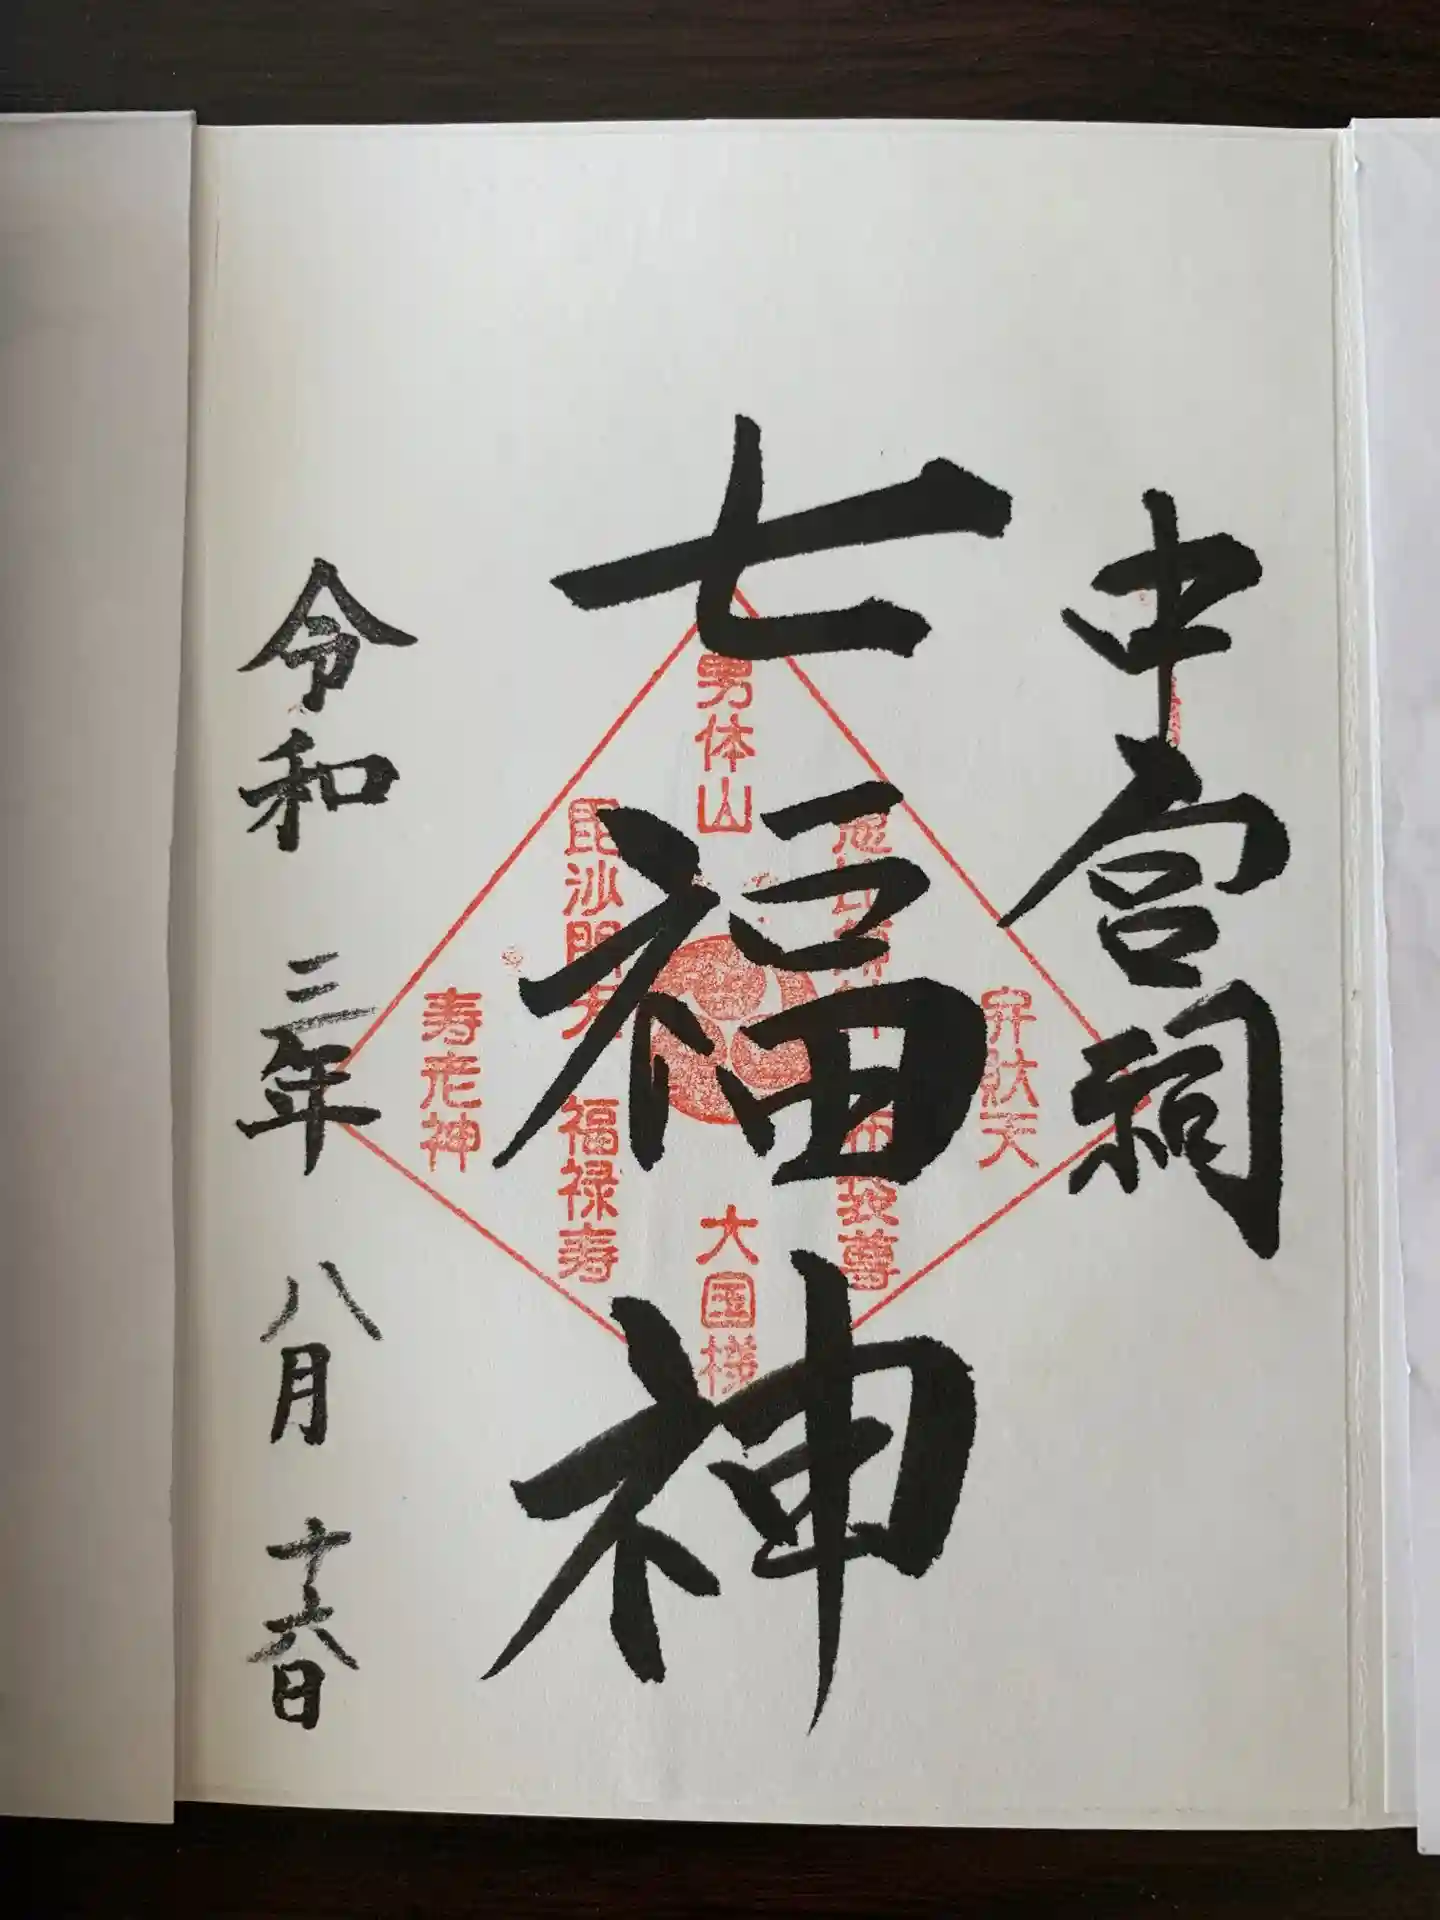 中宮祠
七福神
男体山
弁財天
恵比寿神
布袋尊
大国様
毘沙門天
福禄寿
寿老神
令和三年八月十六日